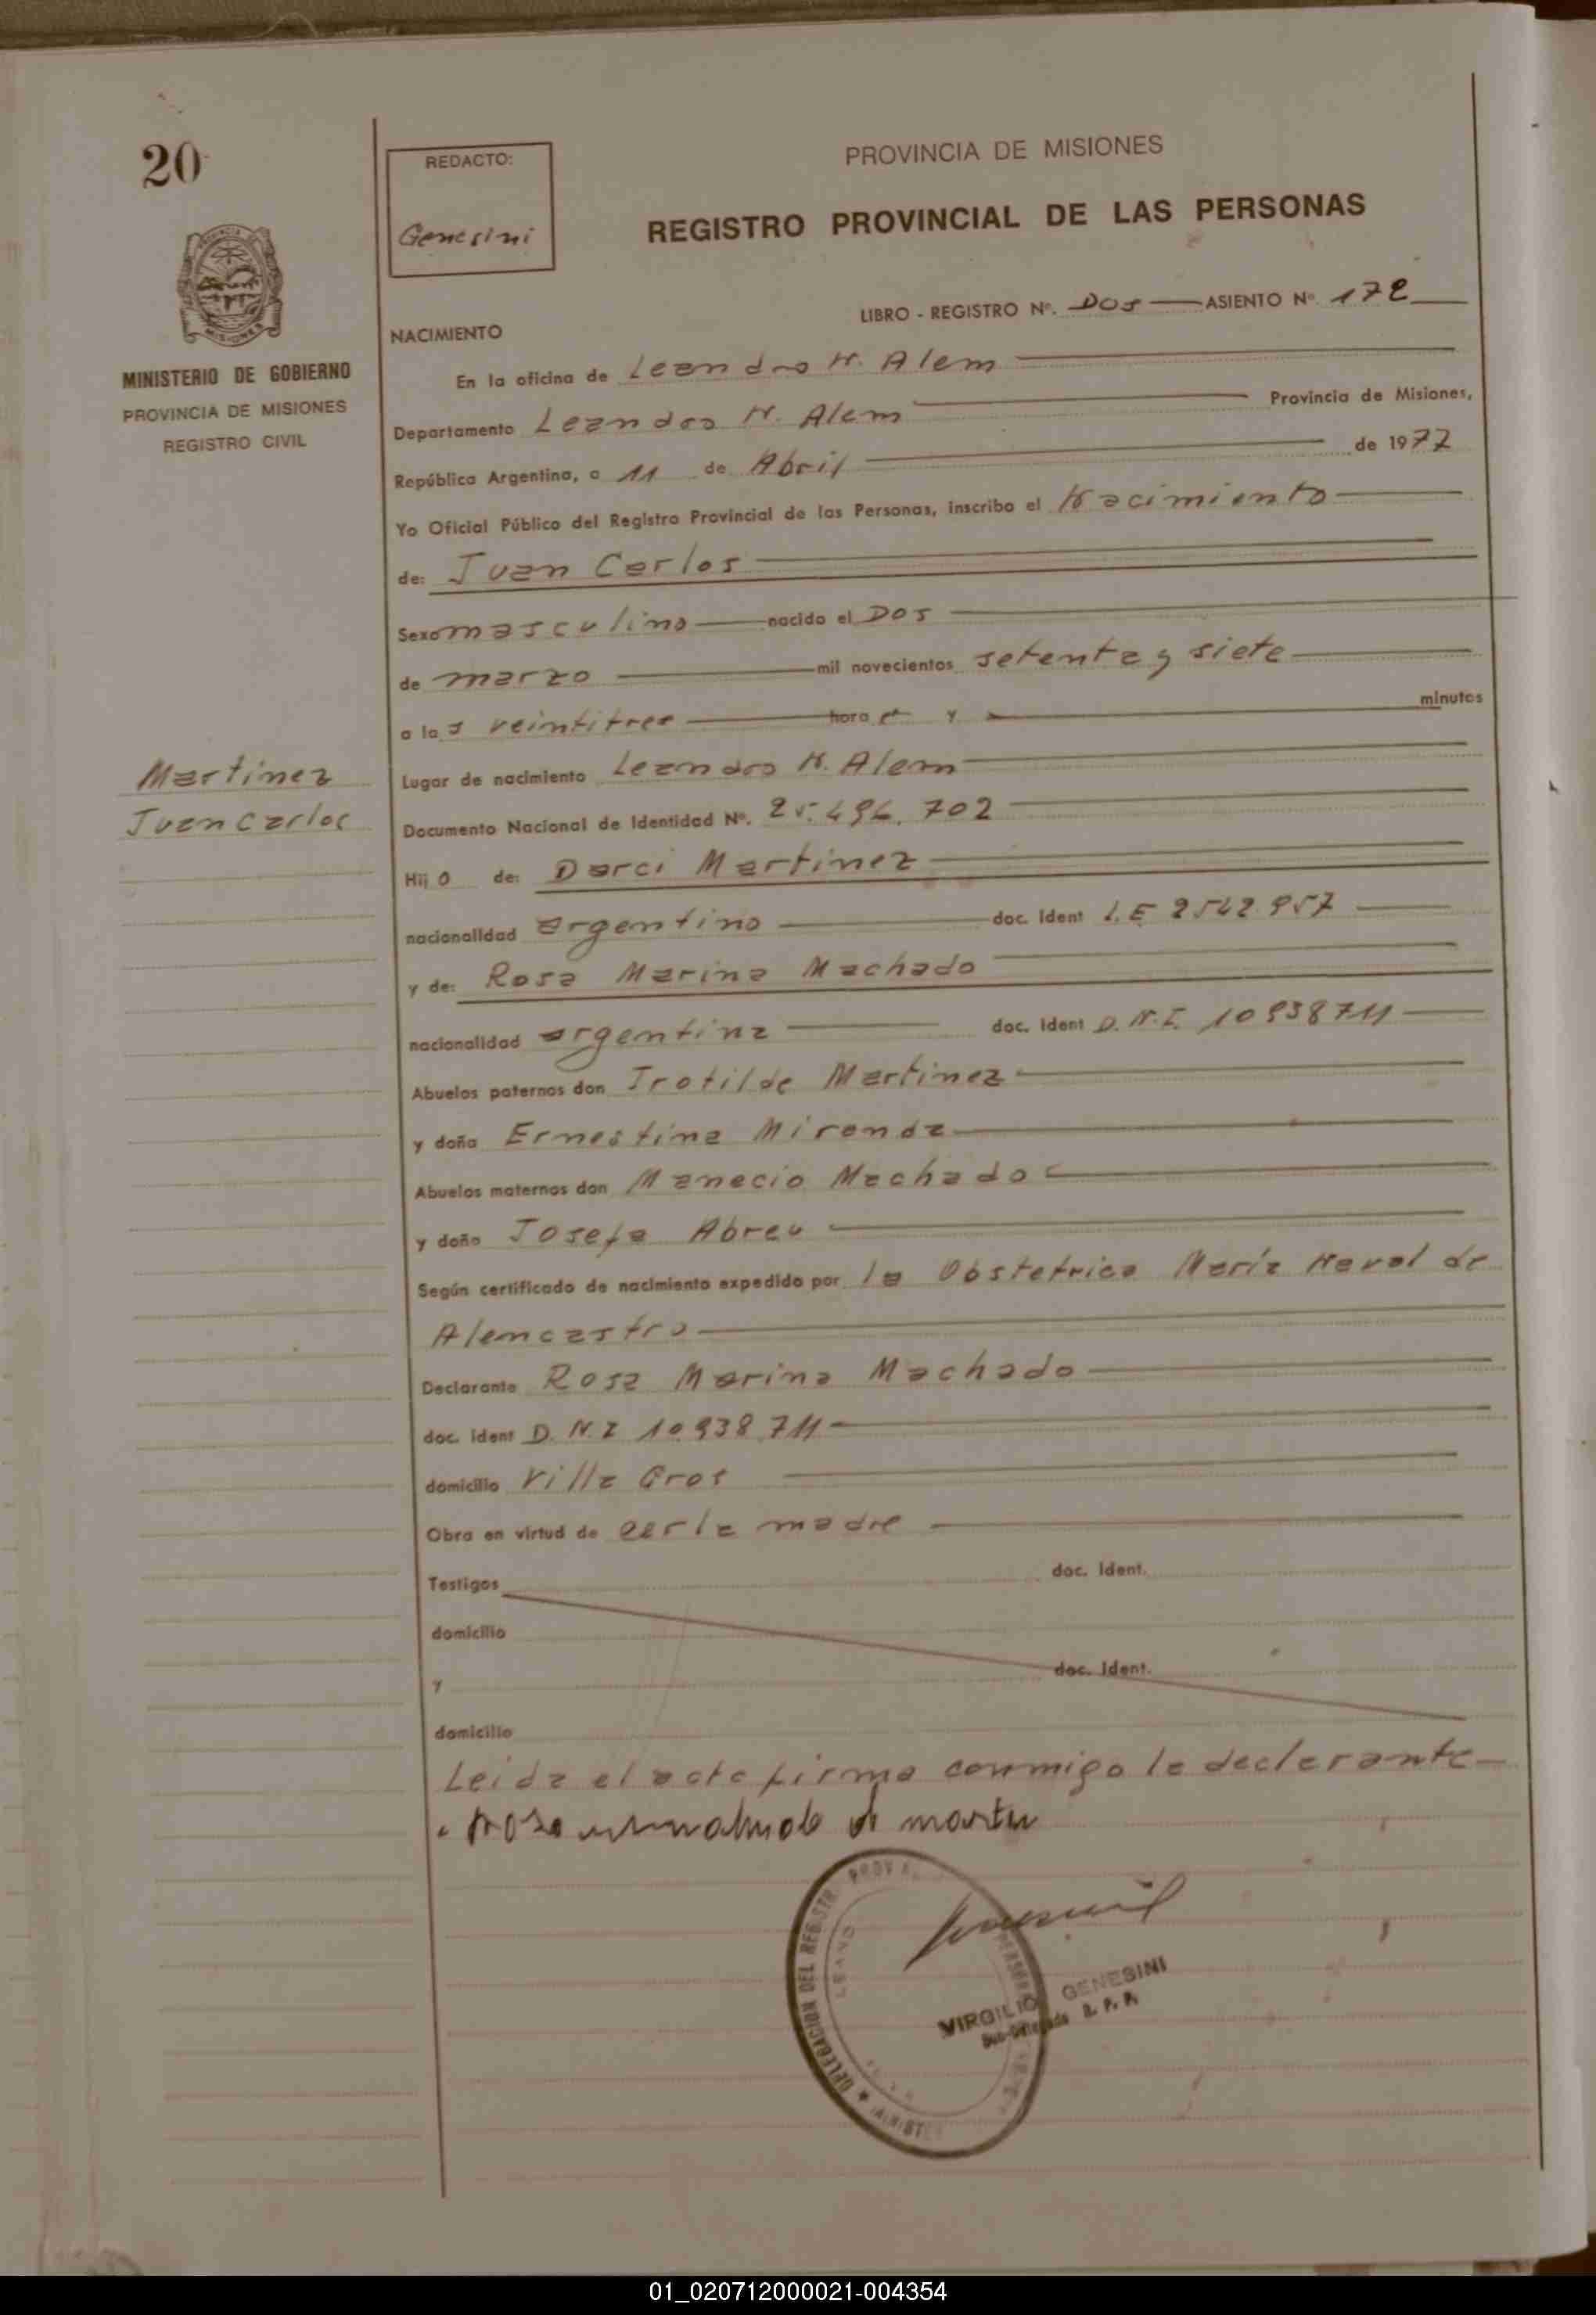 20
REDACTO:
Genesini
PROVINCIA DE MISIONES
REGISTRO PROVINCIAL DE LAS PERSONAS
LIBRO - REGISTRO Nº. Dos ASIENTO Nº. 172
NACIMIENTO
MINISTERIO DE GOBIERNO
PROVINCIA DE MISIONES
REGISTRO CIVIL
En la oficina de Leandro N. Alem
Departamento Leandro N. Alem Provincia de Misiones,
República Argentina, a 11 de Abril de 1977
Yo Oficial Público del Registro Provincial de las Personas, inscribo el Nacimiento
de: Juan Carlos
Sexo masculino nacido el Dos
de marzo mil novecientos setenta y siete
a las veintitres hora y minutos
Martinez
Juan Carlos
Lugar de nacimiento Leandro N. Alem
Documento Nacional de Identidad Nº. 25.496.702
Hijo de: Darci Martinez
nacionalidad argentino doc. Ident L.E 2542.957
y de: Rosa Marina Machado
nacionalidad argentina doc. Ident D.N.I. 10938711
Abuelos paternos don Trotilde Martinez
y doña Ernestina Miranda
Abuelos maternos don Manecio Machado
y doña Josefa Abreu
Según certificado de nacimiento expedido por la Obstetrica María de
Alencastro
Declarante Rosa Marina Machado
doc. Ident D.N.I 10.938.711
domicilio Villa
Obra en virtud de ser la madre
Testigos doc. Ident.
domicilio
y doc. Ident.
domicilio
Leida el acta firma conmigo la declarante
Rosa de
DELEGACION DEL REGISTR. PROV
VIRGILIO GENESINI
Sub-Delegado R. P. P.
01_020712000021-004354